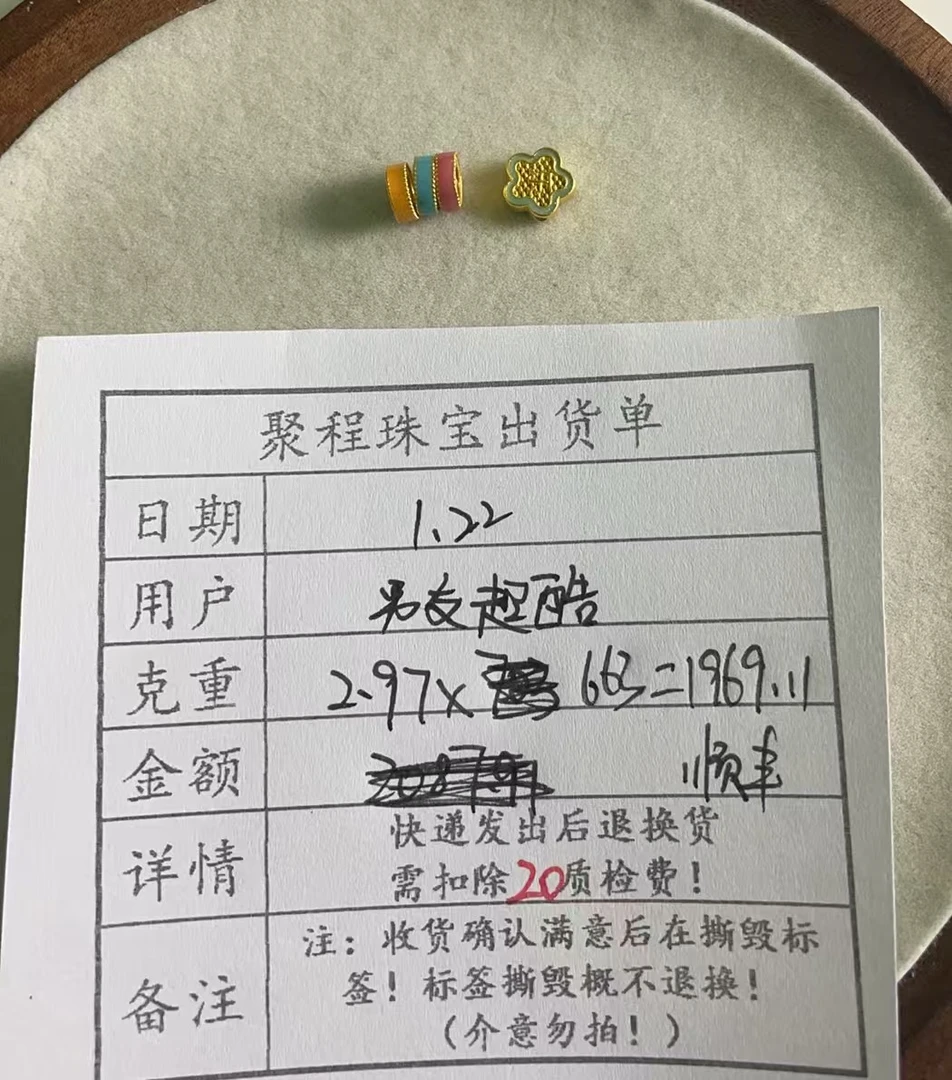 聚程珠宝出货单
日期 1.22
用户 男友超酷
克重 2.97x 663=1969.11
金额 顺丰
详情 快递发出后退换货
需扣除20质检费!
备注 注:收货确认满意后在撕毁标
签!标签撕毁概不退换!
(介意勿拍!)